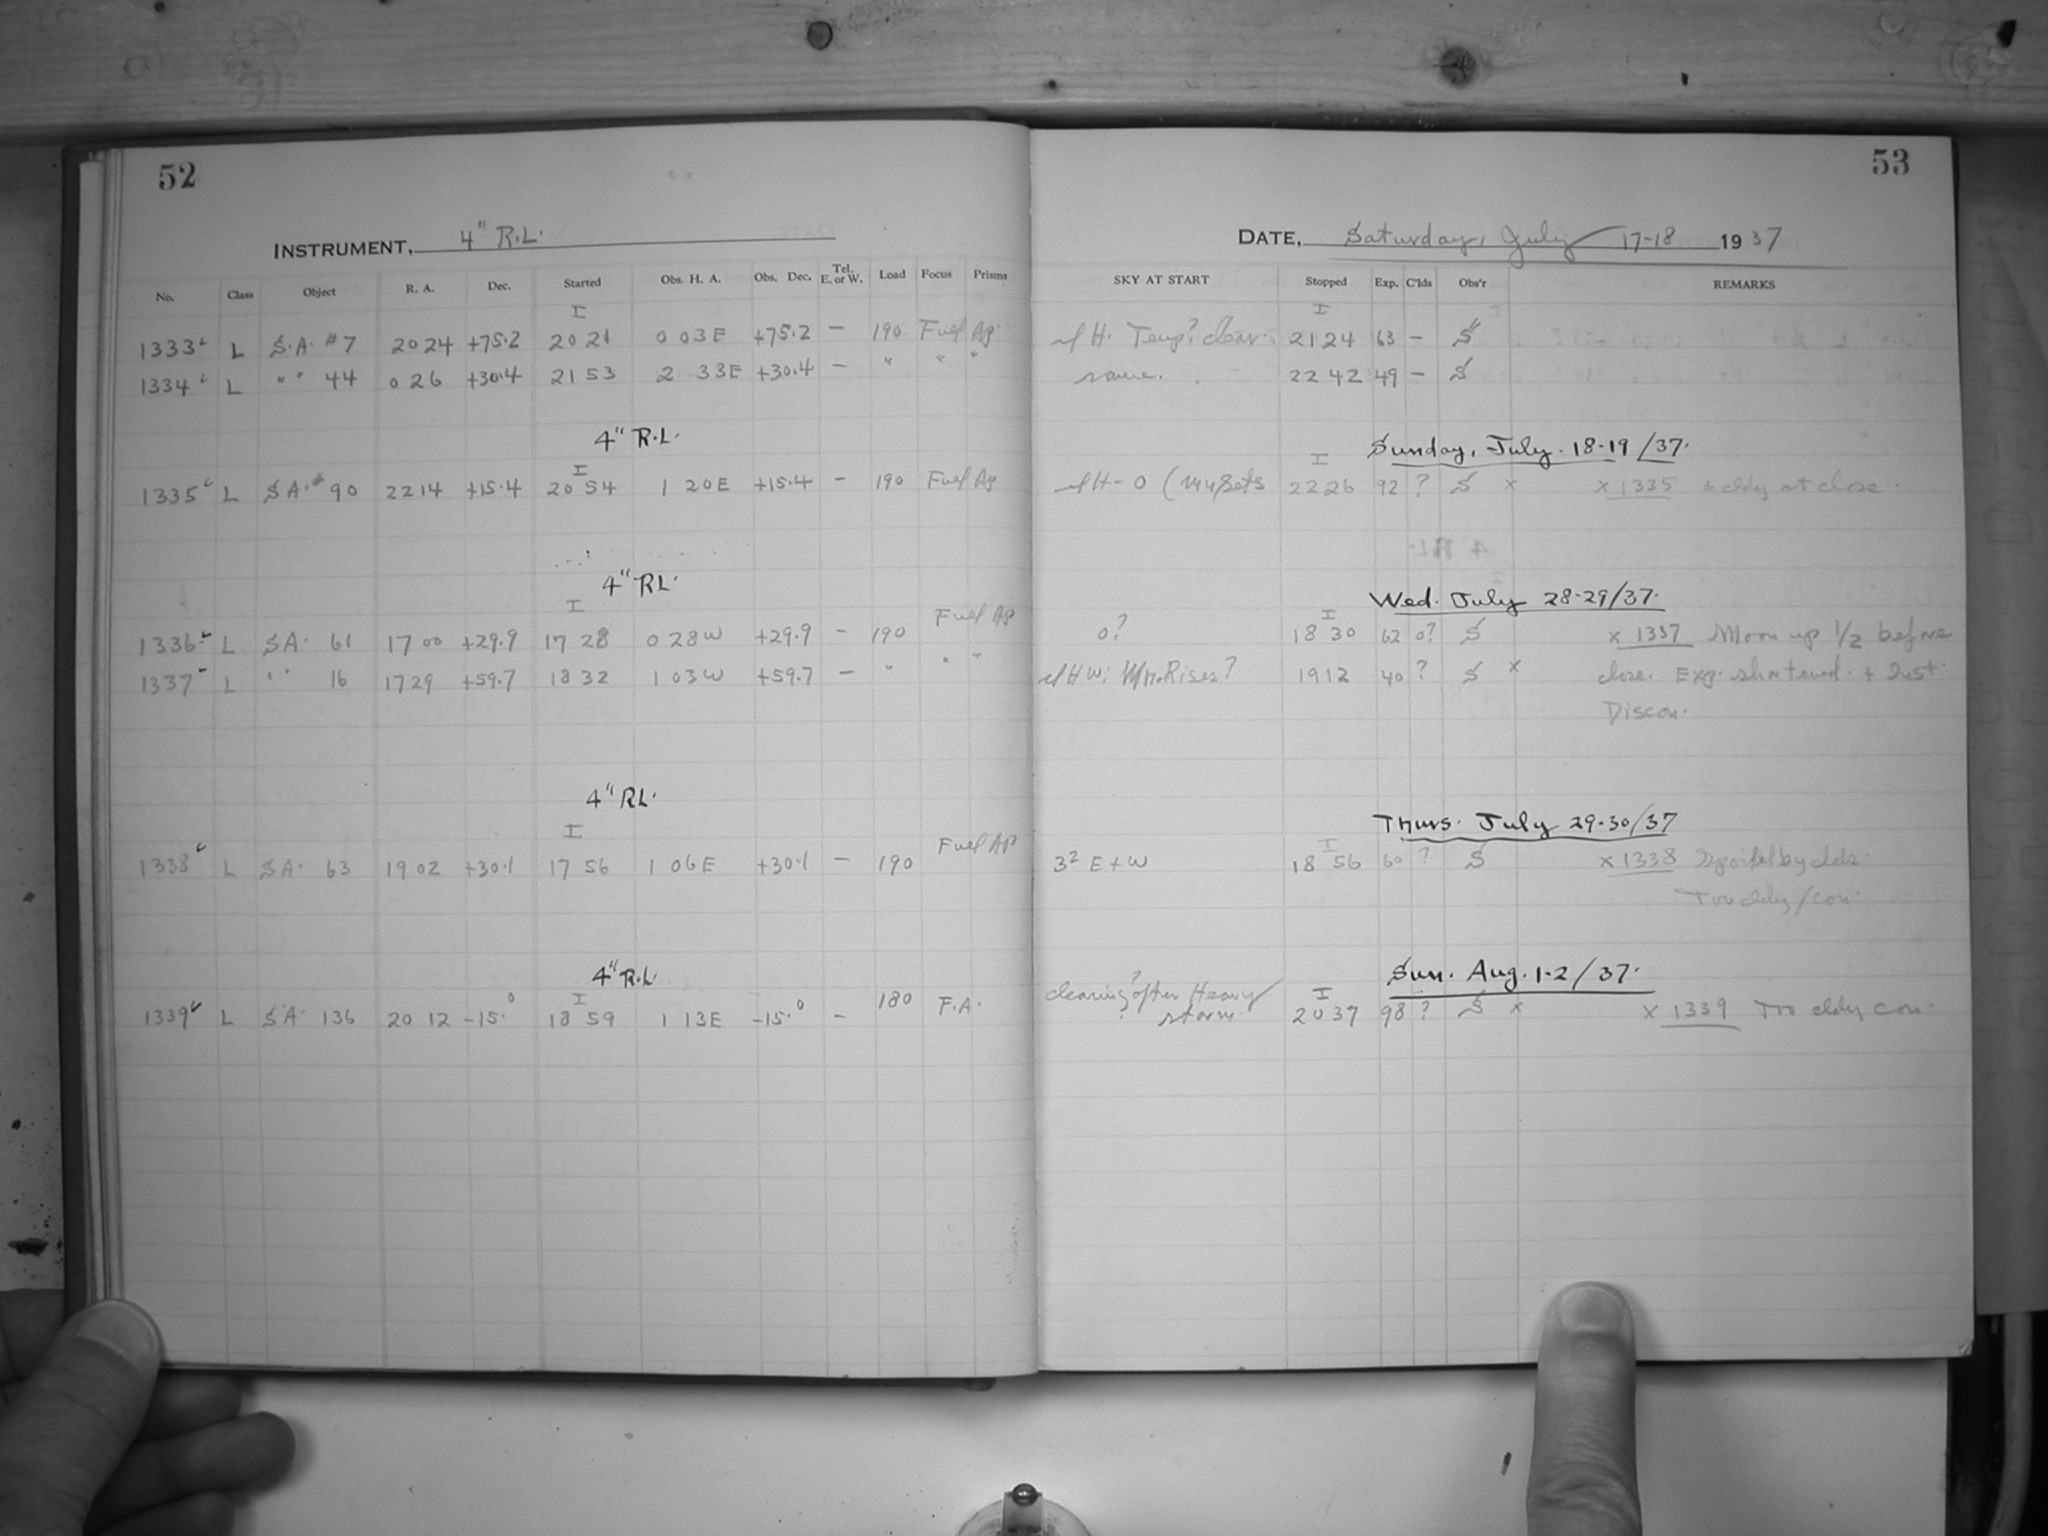 52
INSTRUMENT, 4" R.L.
No. Class Object R. A. Dec. Started Obs. H. A. Obs. Dec. Tel. E. or W. Load Focus Prisms
I
1333 L S.A. #7 20 24 +75.2 20 21 0 03E +75.2 — 190 Fuel Ap.
1334 L " " 44 0 26 +30.4 21 53 2 33E +30.4 — " " "
4" R.L.
I
1335 L S.A. # 90 22 14 +15.4 20 54 1 20E +15.4 — 190 Fuel Ap
4" RL.
I
1336 L S.A. 61 17 00 +29.9 17 28 0 28W +29.9 — 190 Fuel Ap
1337 L " " 16 17 29 +59.7 18 32 1 03W +59.7 — " " "
4" RL.
I
1338 L S.A. 63 19 02 +30.1 17 56 1 06E +30.1 — 190 Fuel Ap
4" R.L.
I
1339 L S.A. 136 20 12 -15.0 18 59 1 13E -15.0 — 180 F.A.
53
DATE, Saturday, July 17-18 1937
SKY AT START Stopped Exp. C'lds Obs'r REMARKS
I
H. Temp? clear. 21 24 63 — S
same. 22 42 49 — S
Sunday, July. 18-19/37.
I
H-0 ( 22 26 92 ? S x x 1335 cldy at close.
Wed. July 28-29/37.
I
0? 18 30 62 0? S x 1337 Moon up 1/2 before
HW; Mn. Rises? 19 12 40 ? S x close. Exp. shortened. +
Discon.
Thurs. July 29-30/37
I
3² E + W 18 56 60 ? S x 1338 Spoiled by clds.
Too cldy/con.
Sun. Aug. 1-2/37.
clearing? after Heavy
I
storm 20 37 98 ? S x x 1339 Too cldy con.